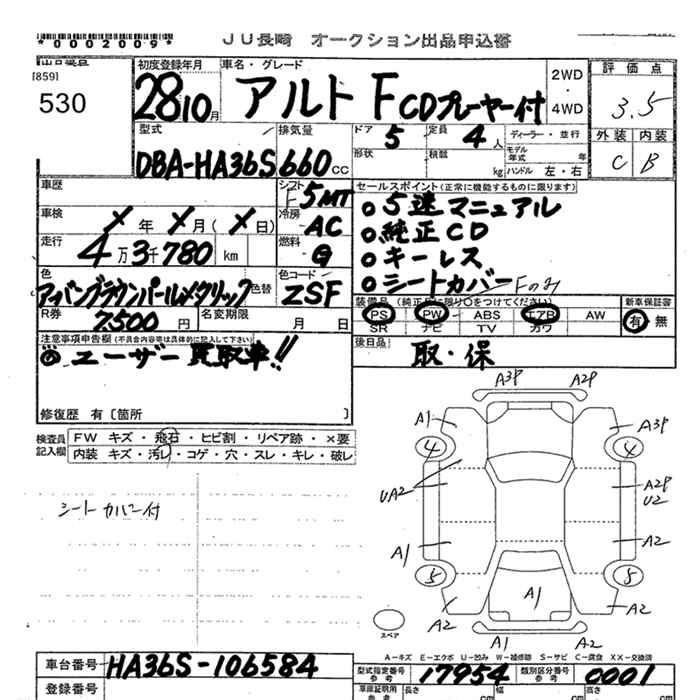 *0002009*
JU長崎 オークション出品申込書
[859]
530
初度登録年月
28 10 月
車名・グレード
アルト F CDプレーヤー付
2WD
・
4WD
評価点
3.5
外装 内装
C B
型式
DBA-HA36S
排気量
660 cc
ドア 5
定員 4 人
形状
積載 kg
ディーラー・並行
モデル年式 年
ハンドル 左・右
車歴
シフト F5MT
車検 X 年 X 月 ( X 日)
冷房 AC
走行 4万3千780 km
燃料 G
色
アーバンブラウンパールメタリック 色替
色コード ZSF
R券 7,500 円
名変期限 月 日
セールスポイント(正常に機能するものに限ります)
○5速マニュアル
○純正CD
○キーレス
○シートカバーFのみ
装備品 (純正品に限り○をつけてください)
PS PW ABS エアB AW
SR ナビ TV カワ
新車保証書
有・無
後日品
取・保
注意事項申告欄(不具合内容等は具体的に記入して下さい)
◎ユーザー買取車!!
修復歴 有〔箇所 〕
検査員記入欄
FW キズ・飛石・ヒビ割・リペア跡・×要
内装 キズ・汚レ・コゲ・穴・スレ・キレ・破レ
シートカバー付
A3P A2P
A1 A3P
4 4
UA2 A2P
U2
A1 A2
5 5
A1
A2 A2
スペア
A1 A2
A-キズ E-エクボ U-凹み W-補修跡 S-サビ C-腐食 XX-交換済
車台番号 HA36S-106584
型式指定番号 参考 17954
類別区分番号 参考 0001
登録番号
車庫証明用 参考
長さ cm
幅 cm
高さ cm